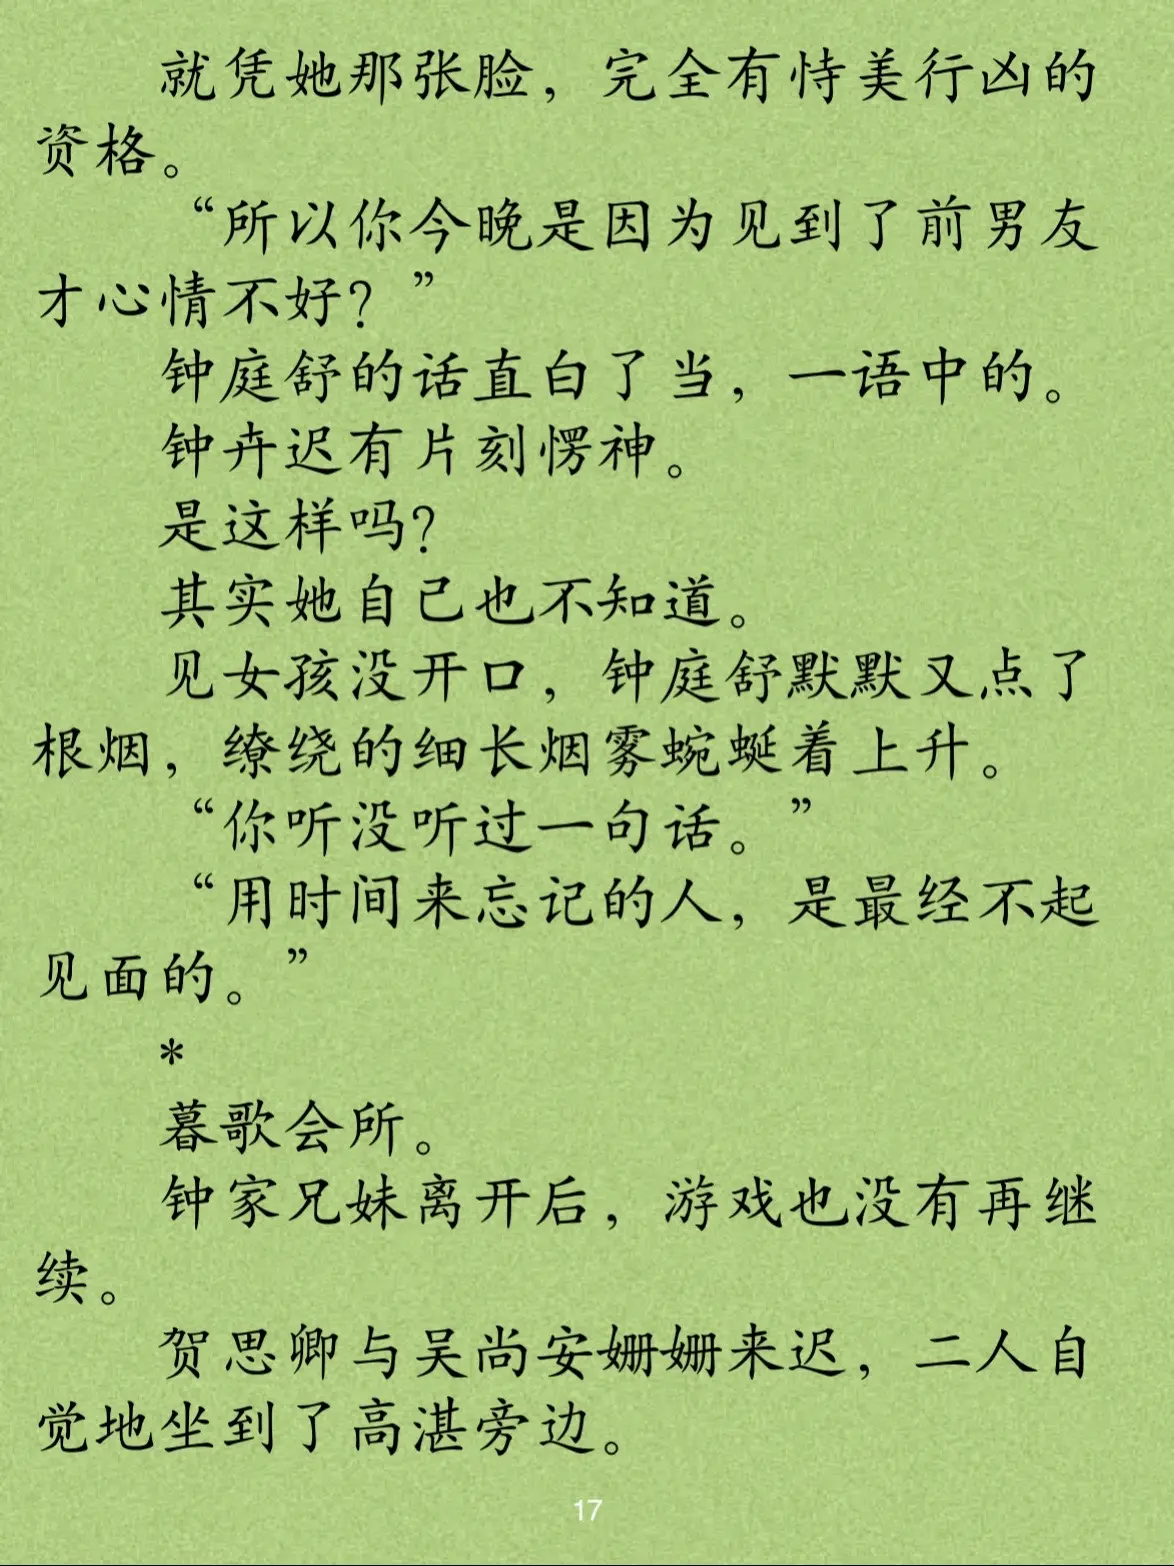 就凭她那张脸，完全有恃美行凶的
资格。
“所以你今晚是因为见到了前男友
才心情不好？”
钟庭舒的话直白了当，一语中的。
钟卉迟有片刻愣神。
是这样吗？
其实她自己也不知道。
见女孩没开口，钟庭舒默默又点了
根烟，缭绕的细长烟雾蜿蜒着上升。
“你听没听过一句话。”
“用时间来忘记的人，是最经不起
见面的。”
*
暮歌会所。
钟家兄妹离开后，游戏也没有再继
续。
贺思卿与吴尚安姗姗来迟，二人自
觉地坐到了高湛旁边。
17